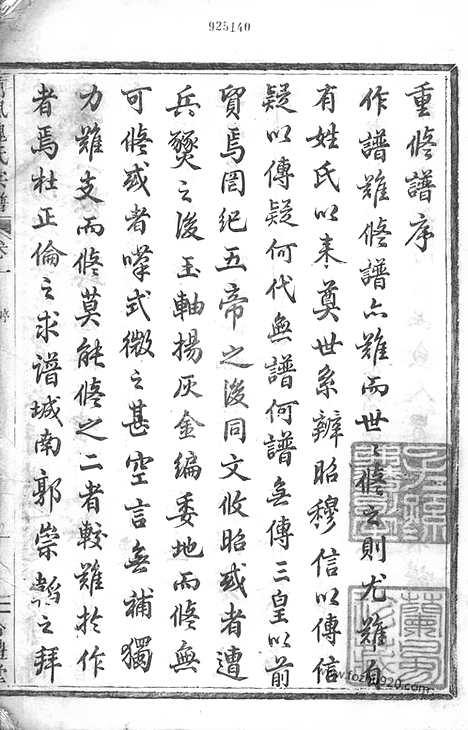 925140
重修譜序
作譜難修譜亦難而世世修之則尤難自
有姓氏以来奠世系辨昭穆信以傳信
疑以傳疑何代無譜何譜無傳三皇以前
貿焉罔紀五帝之後同文攸昭或者遭
兵燹之後玉軸揚灰金編委地而修無
可修或者嘆式微之甚空言無補獨
力難支而修莫能修之二者較難於作
者焉杜正倫之求譜城南郭崇韜之拜
氏宗譜
卷一
序
www.fozhu920.com